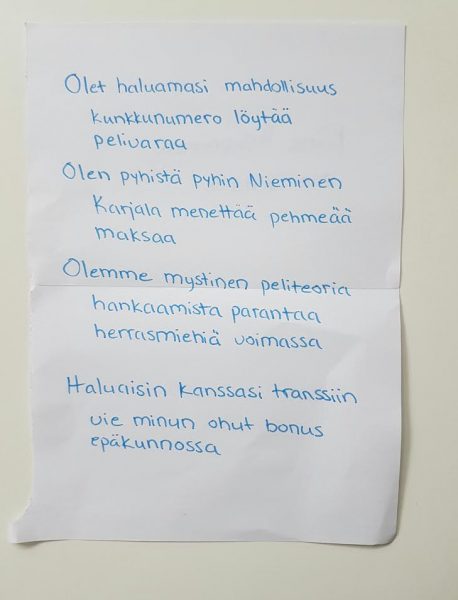 Olet haluamasi mahdollisuus
kunkkunumero löytää
pelivaraa
Olen pyhistä pyhin Nieminen
Karjala menettää pehmeää
maksaa
Olemme mystinen peliteoria
hankaamista parantaa
herrasmiehiä voimassa
Haluaisin kanssasi transsiin
vie minun ohut bonus
epäkunnossa